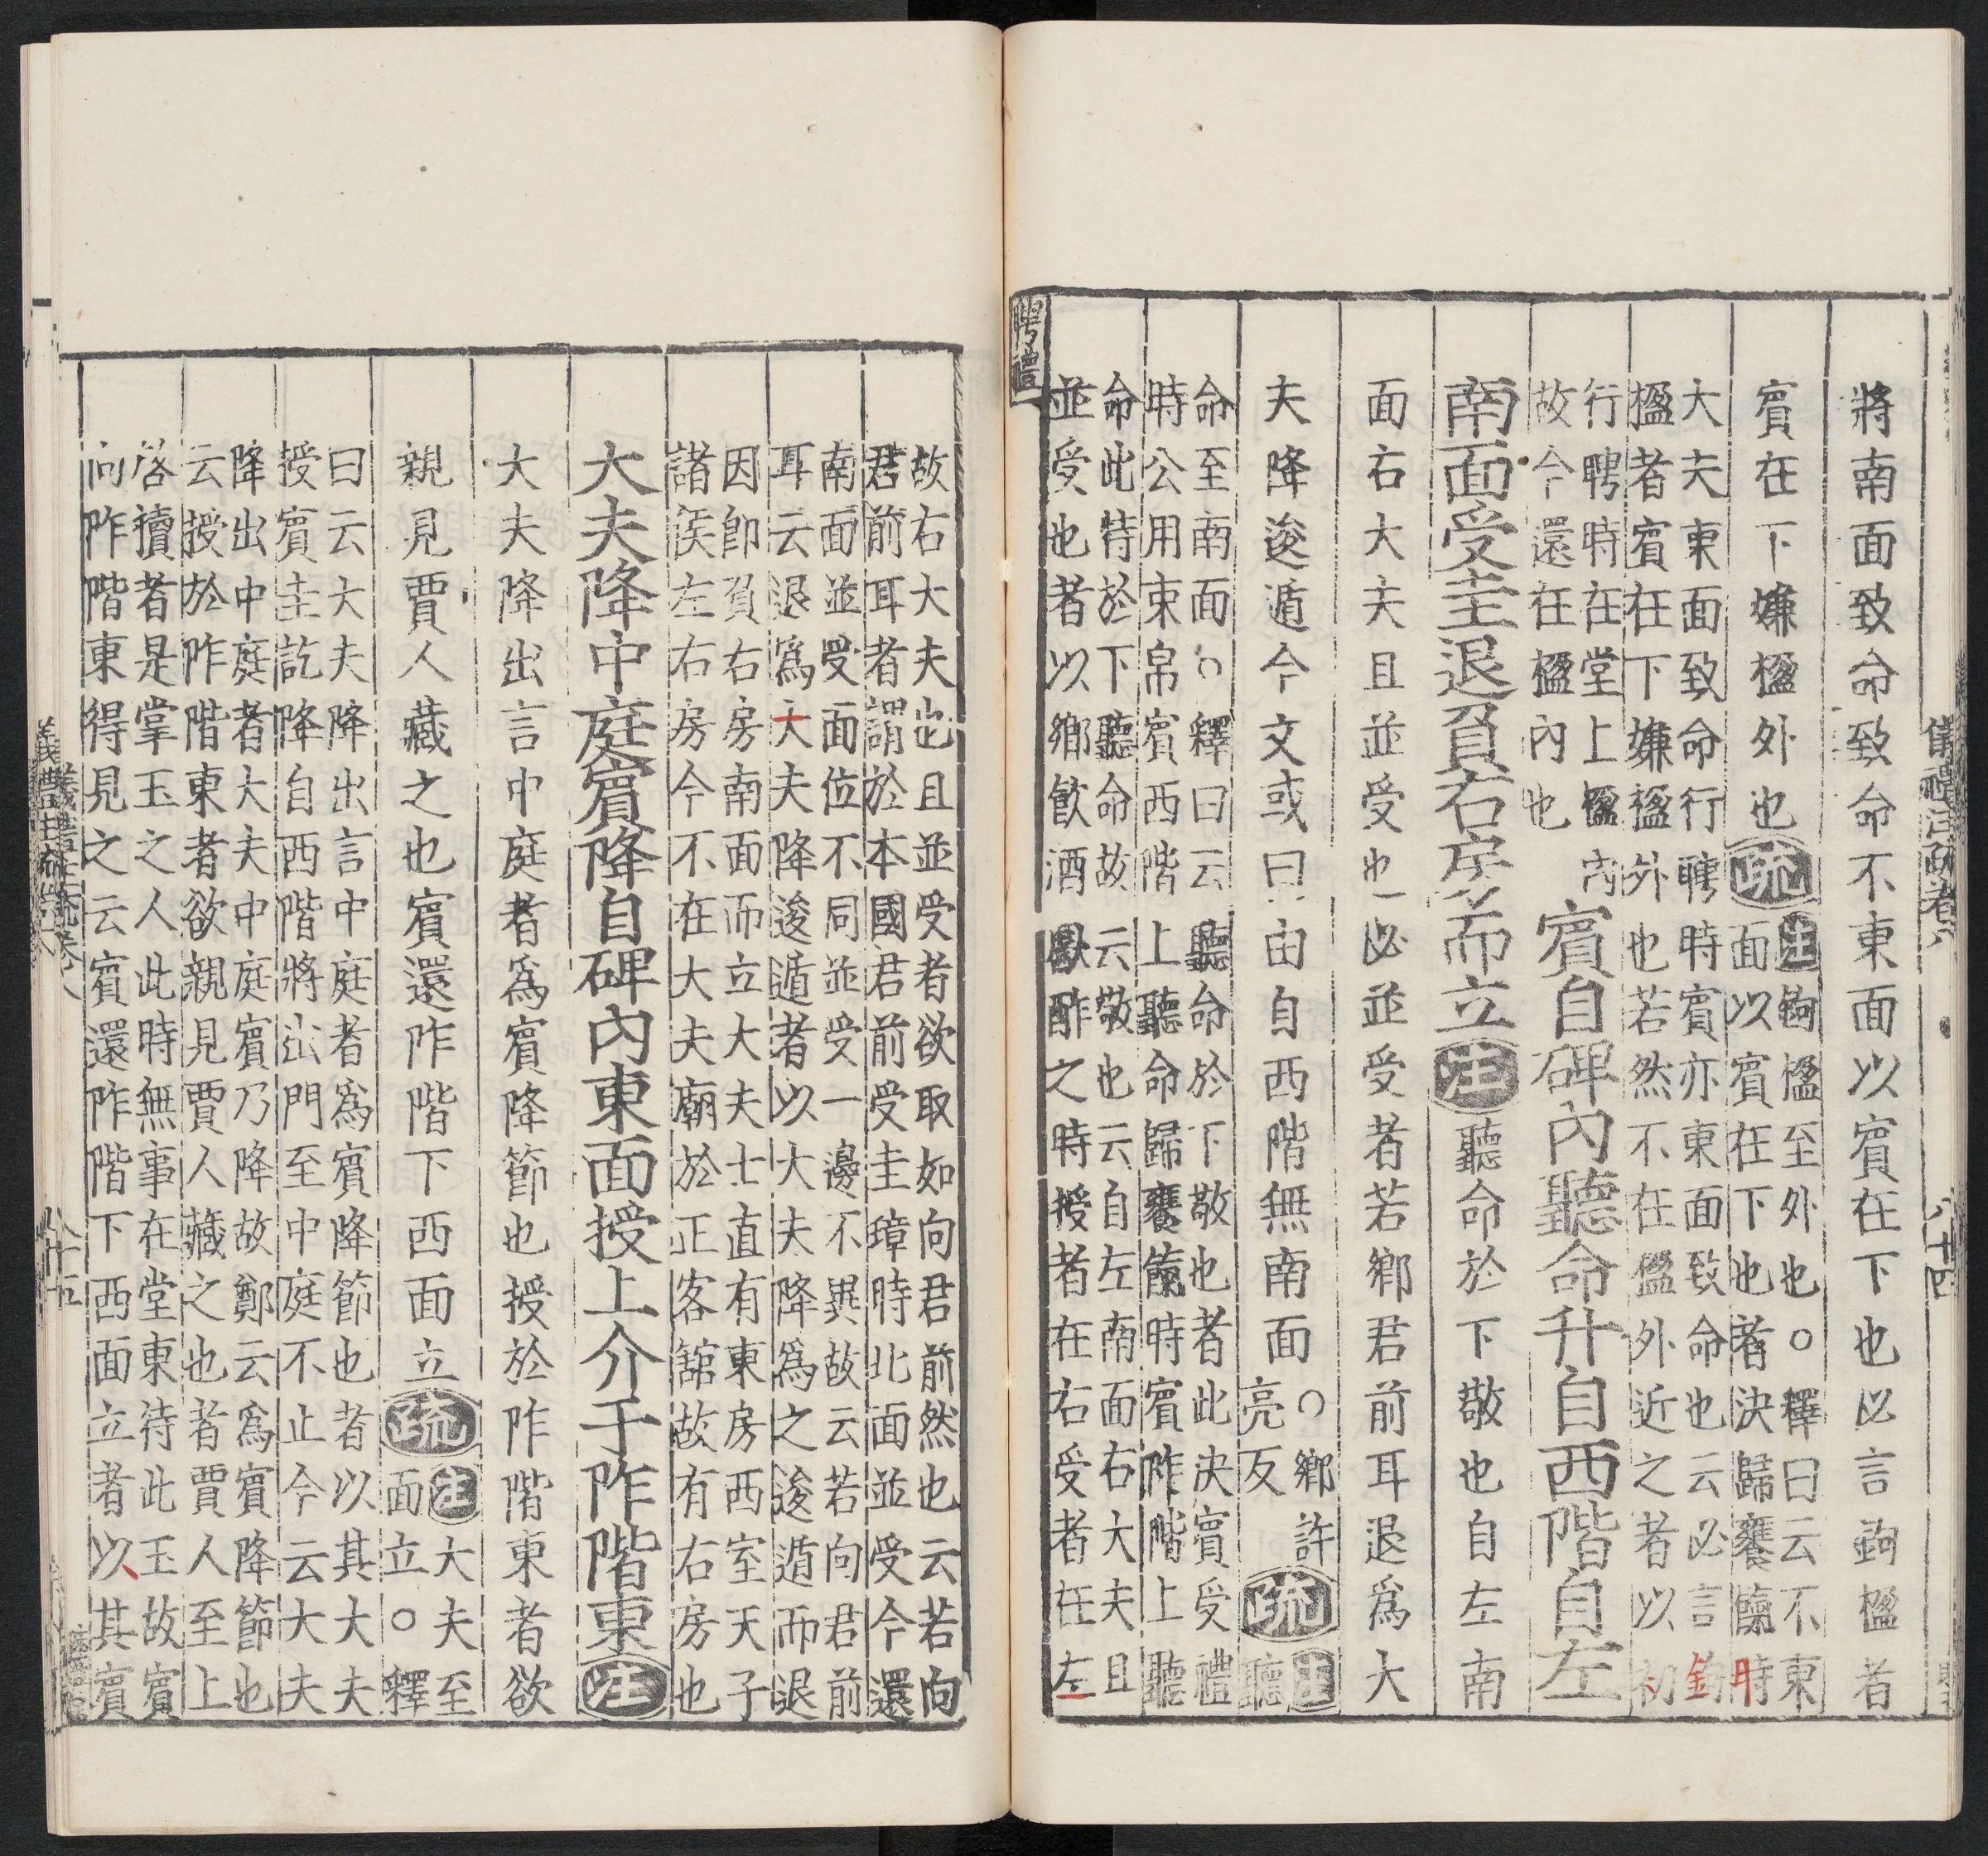 將南面致命致命不東面以賓在下也必言鉤楹者
賓在下嫌楹外也疏
注鉤楹至外也○釋曰云不東
面以賓在下也者決歸饔餼時
大夫東面致命行聘時賓亦東面致命也云必言鉤
楹者賓在下嫌楹外也若然不在楹外近之者以初
行聘時在堂上楹內
故今還在楹內也
賓自碑內聽命升自西階自左
南面受圭退負右房而立注聽命於下敬也自左南
面右大夫且並受也必並受者若鄉君前耳退為大
夫降逡遁今文或曰由自西階無南面
○鄉許
亮反
疏
注聽
命至南面○釋曰云聽命於下敬也者此決賓受禮
時公用束帛賓西階上聽命歸饔餼時賓阼階上聽
命此特於下聽命故云敬也云自左南面右大夫且
並受也者以鄉飲酒獻酢之時授者在右受者在左
聘禮
儀禮注疏卷八
八十四
故右大夫也且並受者欲取如向君前然也云若向
君前耳者謂於本國君前受圭璋時北面並受今還
南面並受面位不同並受一邊不異故云若向君前
耳云退為大夫降逡遁者以大夫降為之逡遁而退
因即負右房南面而立大夫士直有東房西室天子
諸侯左右房今不在大夫廟於正客館故有右房也
大夫降中庭賓降自碑內東面授上介于阼階東注
大夫降出言中庭者為賓降節也授於阼階東者欲
親見賈人藏之也賓還阼階下西面立疏
注大夫至
面立○釋
曰云大夫降出言中庭者為賓降節也者以其大夫
授賓圭訖降自西階將出門至中庭不止今云大夫
降出中庭者大夫中庭賓乃降故鄭云為賓降節也
云授於阼階東者欲親見賈人藏之也者賈人至上
啓櫝者是掌玉之人此時無事在堂東待此玉故賓
向阼階東得見之云賓還阼階下西面立者以其賓